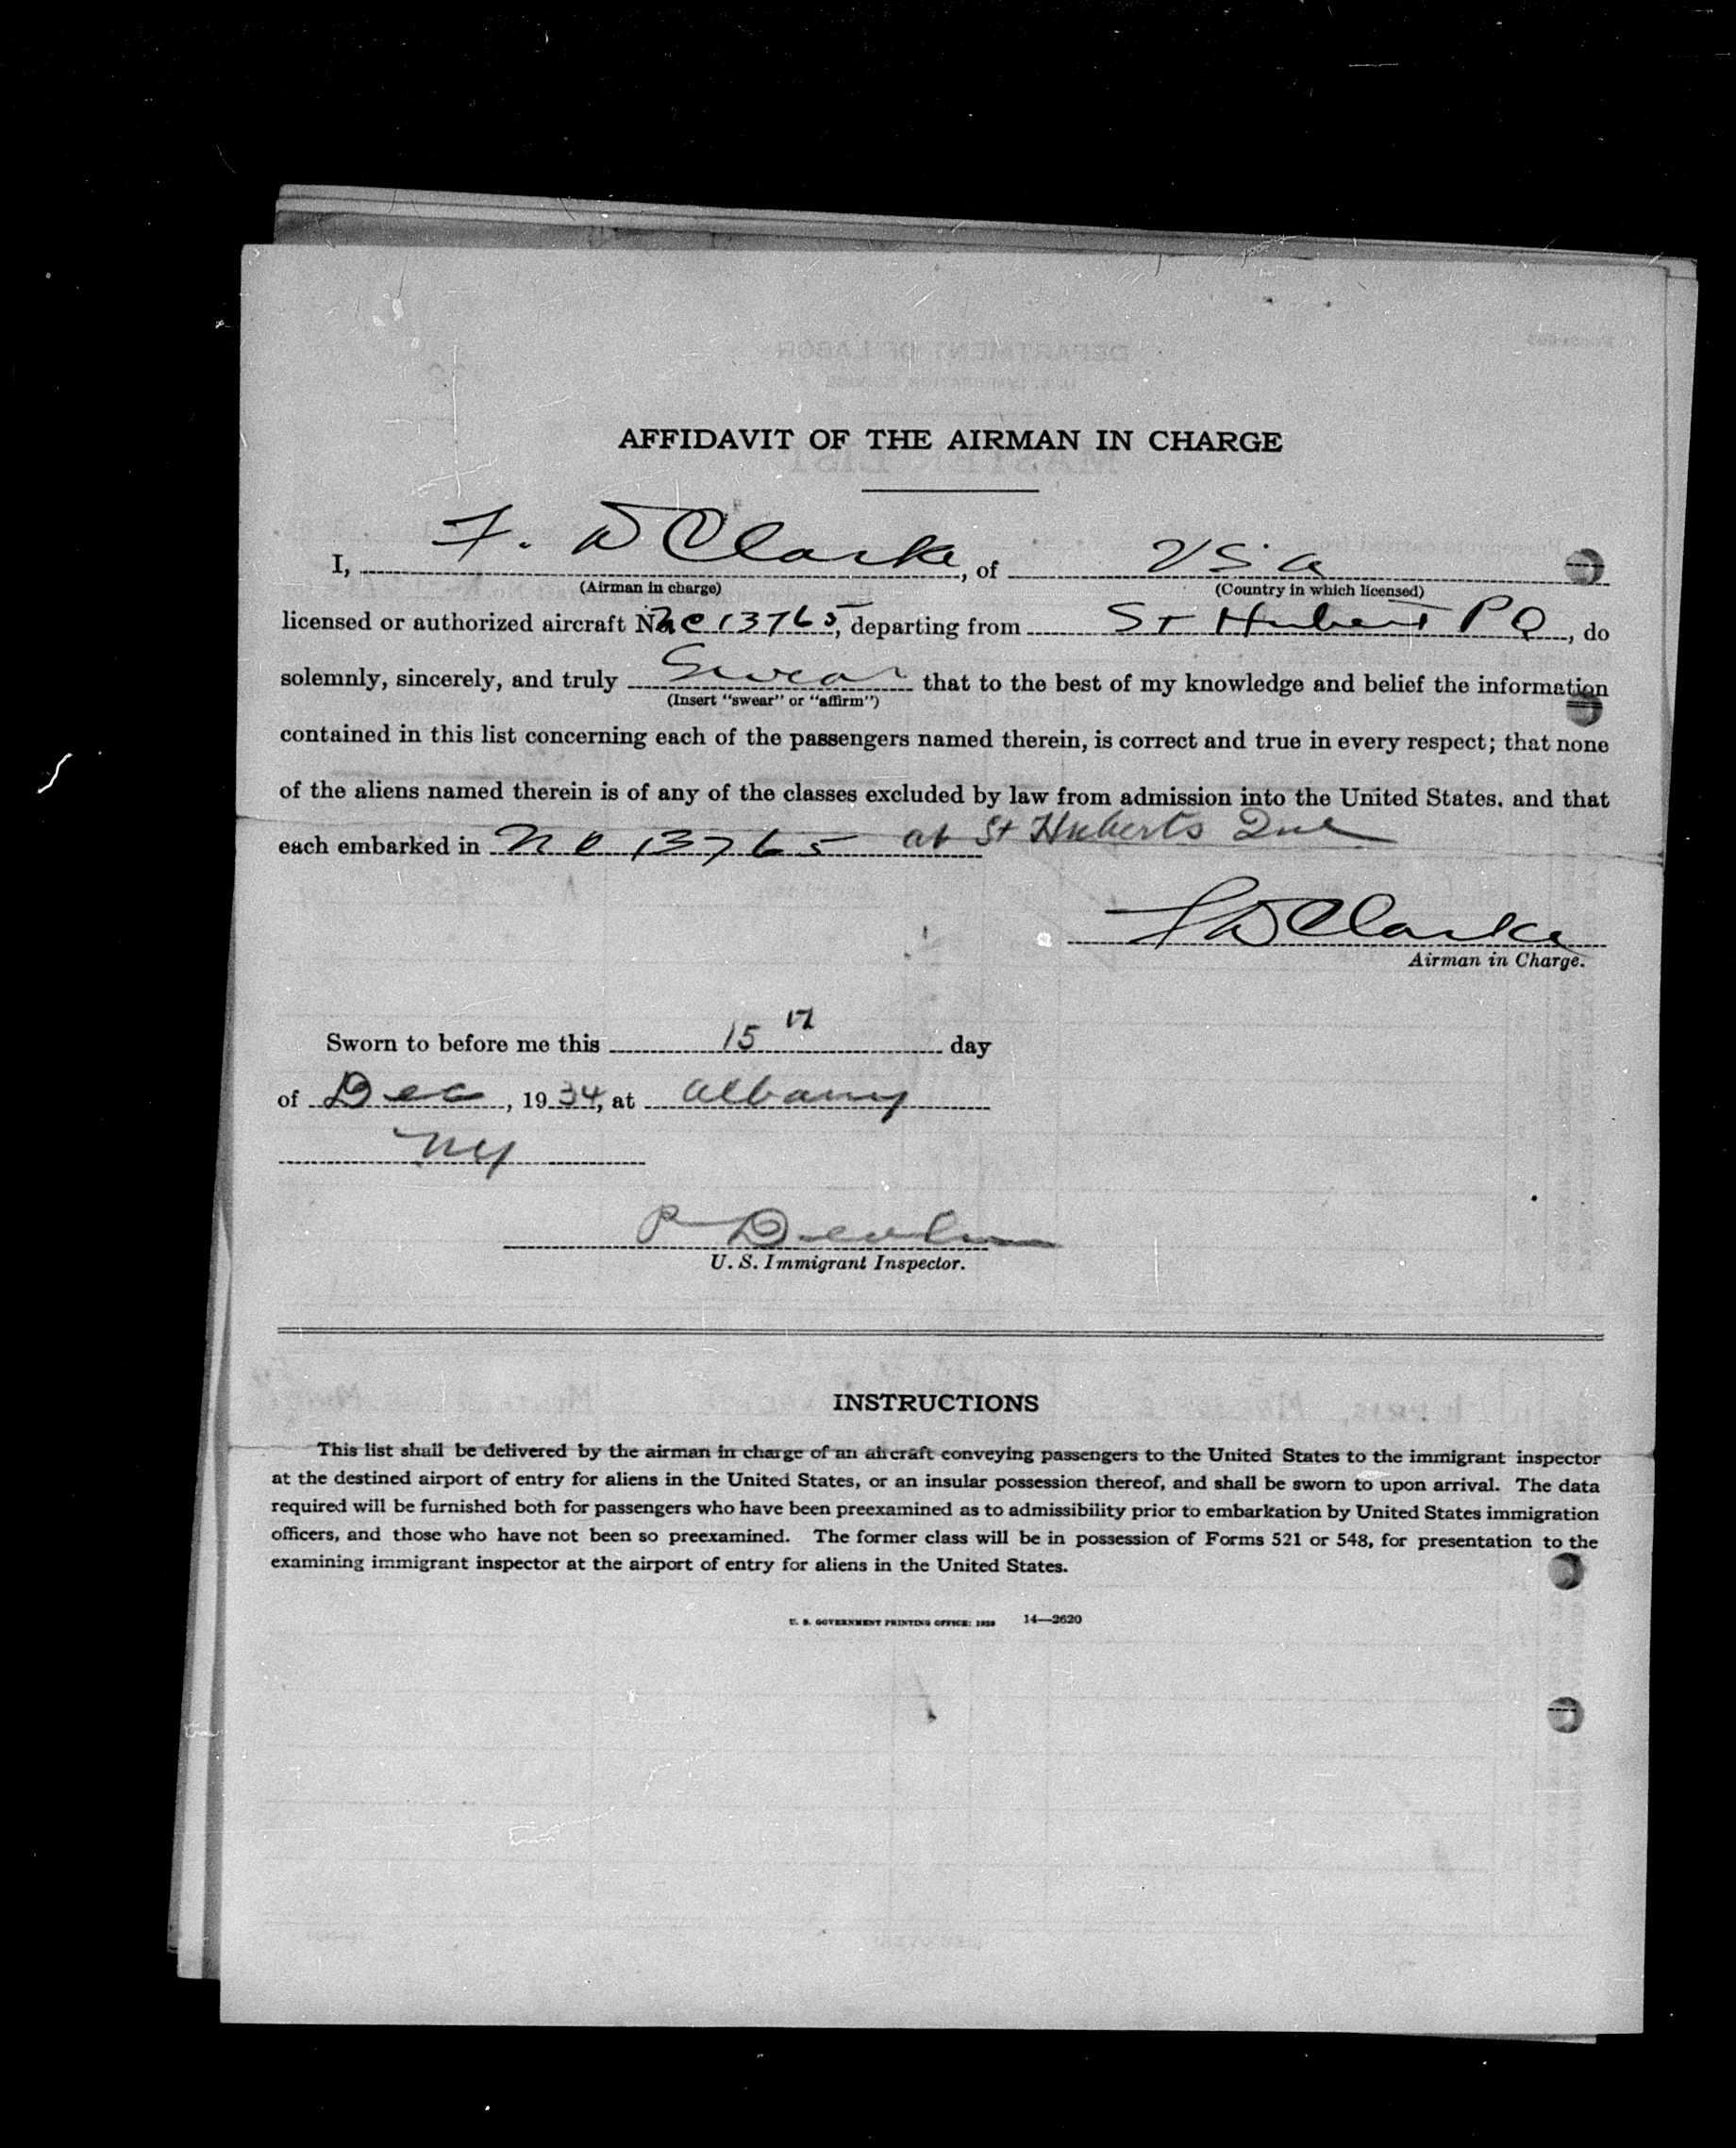 AFFIDAVIT OF THE AIRMAN IN CHARGE
I, F. D Clarke, of USA
(Airman in charge) (Country in which licensed)
licensed or authorized aircraft No. NC13765, departing from St Hubert PQ, do
solemnly, sincerely, and truly Swear that to the best of my knowledge and belief the information
(Insert "swear" or "affirm")
contained in this list concerning each of the passengers named therein, is correct and true in every respect; that none
of the aliens named therein is of any of the classes excluded by law from admission into the United States, and that
each embarked in NC 13765 at St Huberts Que
F D Clarke
Airman in Charge.
Sworn to before me this 15th day
of Dec, 1934, at Albany
NY
U. S. Immigrant Inspector.
INSTRUCTIONS
This list shall be delivered by the airman in charge of an aircraft conveying passengers to the United States to the immigrant inspector
at the destined airport of entry for aliens in the United States, or an insular possession thereof, and shall be sworn to upon arrival. The data
required will be furnished both for passengers who have been preexamined as to admissibility prior to embarkation by United States immigration
officers, and those who have not been so preexamined. The former class will be in possession of Forms 521 or 548, for presentation to the
examining immigrant inspector at the airport of entry for aliens in the United States.
U. S. GOVERNMENT PRINTING OFFICE: 14—2620